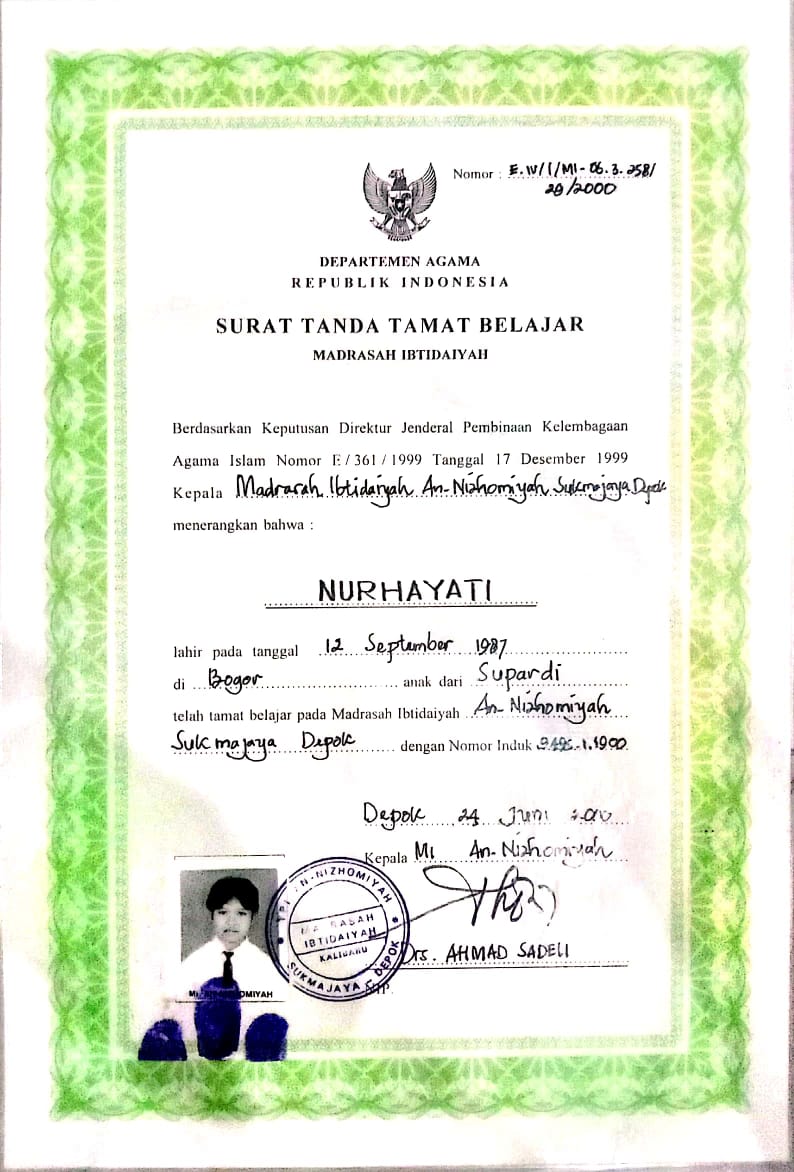 Nomor : E.IV/I/MI-06.3.258/
28/2000
DEPARTEMEN AGAMA
REPUBLIK INDONESIA
SURAT TANDA TAMAT BELAJAR
MADRASAH IBTIDAIYAH
Berdasarkan Keputusan Direktur Jenderal Pembinaan Kelembagaan
Agama Islam Nomor E/361/1999 Tanggal 17 Desember 1999
Kepala Madrasah Ibtidaiyah An-Nizhomiyah Sukmajaya Depok
menerangkan bahwa :
NURHAYATI
lahir pada tanggal 12 September 1987
di Bogor anak dari Supardi
telah tamat belajar pada Madrasah Ibtidaiyah An-Nizhomiyah
Sukmajaya Depok dengan Nomor Induk
Depok 24 Juni
Kepala MI An-Nizhomiyah
AN-NIZHOMIYAH
IBTIDAIYAH
KALIBARU
SUKMAJAYA DEPOK
Drs. AHMAD SADELI
NIP.